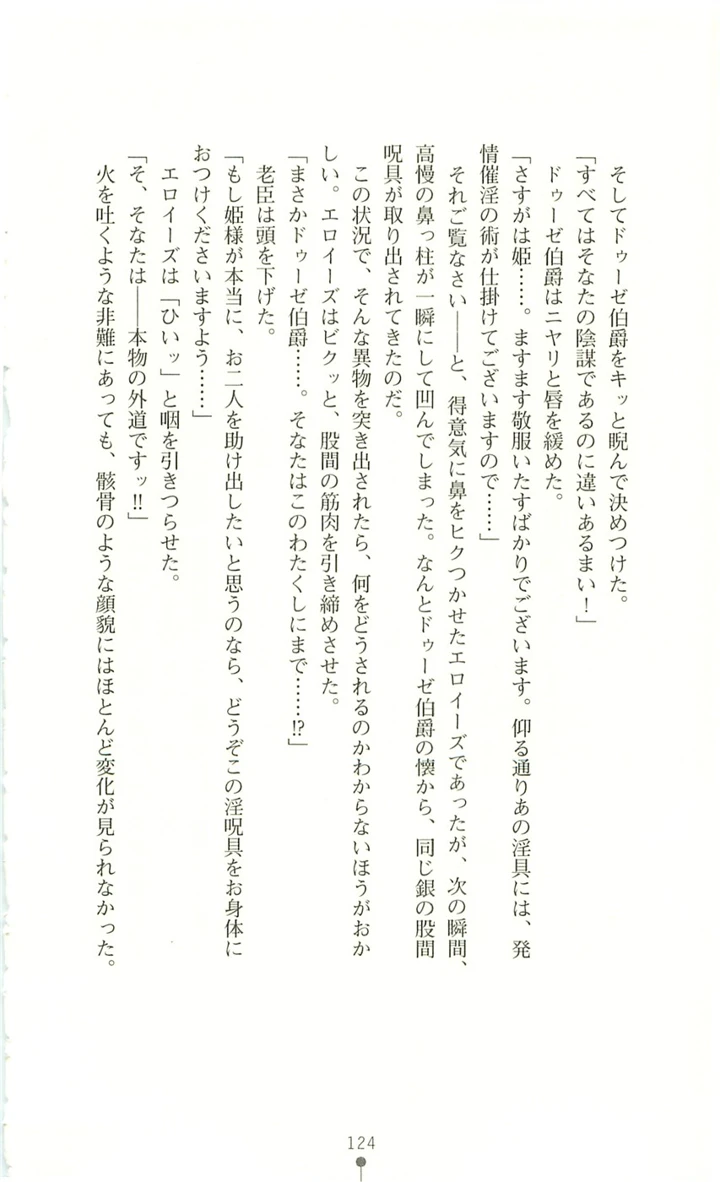 そしてドゥーゼ伯爵をキッと睨んで決めつけた。
「すべてはそなたの陰謀であるのに違いあるまい！」
ドゥーゼ伯爵はニヤリと唇を緩めた。
「さすがは姫……。ますます敬服いたすばかりでございます。仰る通りあの淫具には、発
情催淫の術が仕掛けてございますので……」
それご覧なさい――と、得意気に鼻をヒクつかせたエロイーズであったが、次の瞬間、
高慢の鼻っ柱が一瞬にして凹んでしまった。なんとドゥーゼ伯爵の懐から、同じ銀の股間
呪具が取り出されてきたのだ。
この状況で、そんな異物を突き出されたら、何をどうされるのかわからないほうがおか
しい。エロイーズはビクッと、股間の筋肉を引き締めさせた。
「まさかドゥーゼ伯爵……。そなたはこのわたくしにまで……⁉」
老臣は頭を下げた。
「もし姫様が本当に、お二人を助け出したいと思うのなら、どうぞこの淫呪具をお身体に
おつけくださいますよう……」
エロイーズは「ひいッ」と咽を引きつらせた。
「そ、そなたは――本物の外道ですッ‼」
火を吐くような非難にあっても、骸骨のような顔貌にはほとんど変化が見られなかった。
124